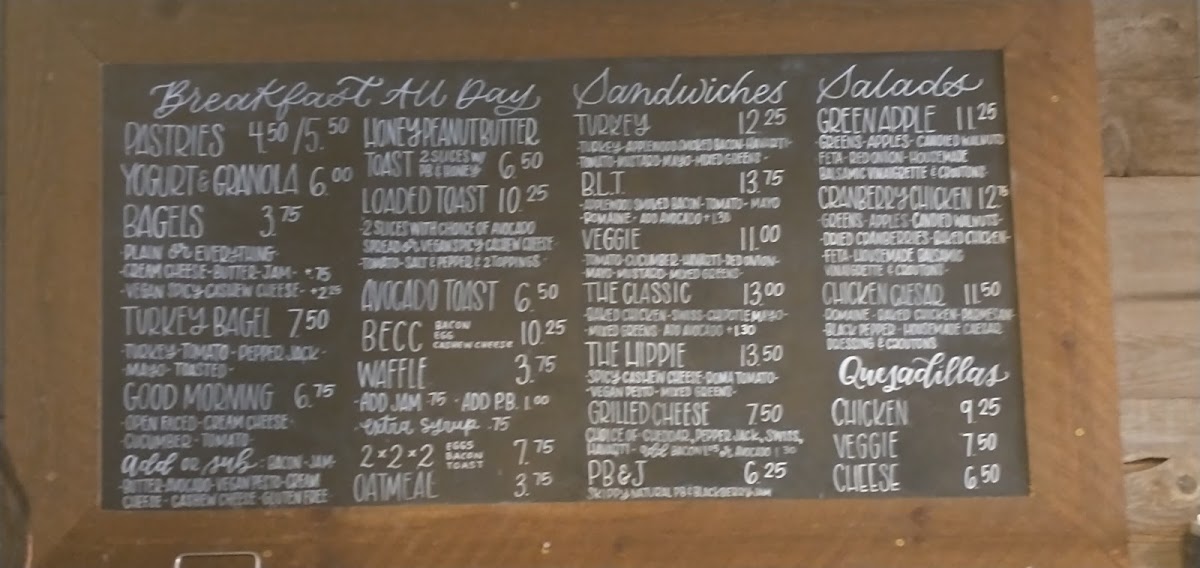 Breakfast All Day
PASTRIES 4.50/5.50
YOGURT & GRANOLA 6.00
BAGELS 3.75
PLAIN or EVERYTHING
-CREAM CHEESE-BUTTER-JAM- +.75
-VEGAN SPICY CASHEW CHEESE- +2.25
TURKEY BAGEL 7.50
-TURKEY-TOMATO-PEPPER JACK-
-MAYO-TOASTED-
GOOD MORNING 6.75
OPEN FACED-CREAM CHEESE-
CUCUMBER-TOMATO-
add or sub: BACON-JAM-
BUTTER-AVOCADO-VEGAN PESTO-CREAM
CHEESE-CASHEW CHEESE-GLUTEN FREE
HONEY PEANUT BUTTER
TOAST 2 SLICES W/ PB & HONEY 6.50
LOADED TOAST 10.25
-2 SLICES WITH CHOICE OF AVOCADO
SPREAD or VEGAN SPICY CASHEW CHEESE-
TOMATO-SALT & PEPPER & 2 TOPPINGS-
AVOCADO TOAST 6.50
BECC BACON EGG CASHEW CHEESE 10.25
WAFFLE 3.75
-ADD JAM .75 -ADD P.B. 1.00
-extra syrup .75
2x2x2 EGGS BACON TOAST 7.75
OATMEAL 3.75
Sandwiches
TURKEY 12.25
-TURKEY-APPLEWOOD SMOKED BACON-HAVARTI-
TOMATO-MUSTARD-MAYO-MIXED GREENS-
B.L.T. 13.75
-APPLEWOOD SMOKED BACON-TOMATO-MAYO
-ROMAINE- ADD AVOCADO +1.30
VEGGIE 11.00
TOMATO-CUCUMBER-HAVARTI-RED ONION-
MAYO-MUSTARD-MIXED GREENS-
THE CLASSIC 13.00
BAKED CHICKEN-SWISS-CHIPOTLE MAYO-
-MIXED GREENS- ADD AVOCADO +1.30
THE HIPPIE 13.50
SPICY CASHEW CHEESE-ROMA TOMATO-
-VEGAN PESTO-MIXED GREENS-
GRILLED CHEESE 7.50
CHOICE OF CHEDDAR, PEPPER JACK, SWISS,
HAVARTI- add BACON or AVOCADO 1.30
PB & J 6.25
SKIPPY NATURAL PB & BLACKBERRY JAM
Salads
GREEN APPLE 11.25
GREENS-APPLES-CANDIED WALNUTS
FETA-RED ONION-HOUSEMADE
BALSAMIC VINAIGRETTE & CROUTONS-
CRANBERRY CHICKEN 12.75
-GREENS-APPLES-CANDIED WALNUTS-
-DRIED CRANBERRIES-BAKED CHICKEN-
-FETA-HOUSEMADE BALSAMIC
VINAIGRETTE & CROUTONS-
CHICKEN CAESAR 11.50
ROMAINE-BAKED CHICKEN-PARMESAN-
-BLACK PEPPER-HOMEMADE CAESAR
DRESSING & CROUTONS
Quesadillas
CHICKEN 9.25
VEGGIE 7.50
CHEESE 6.50